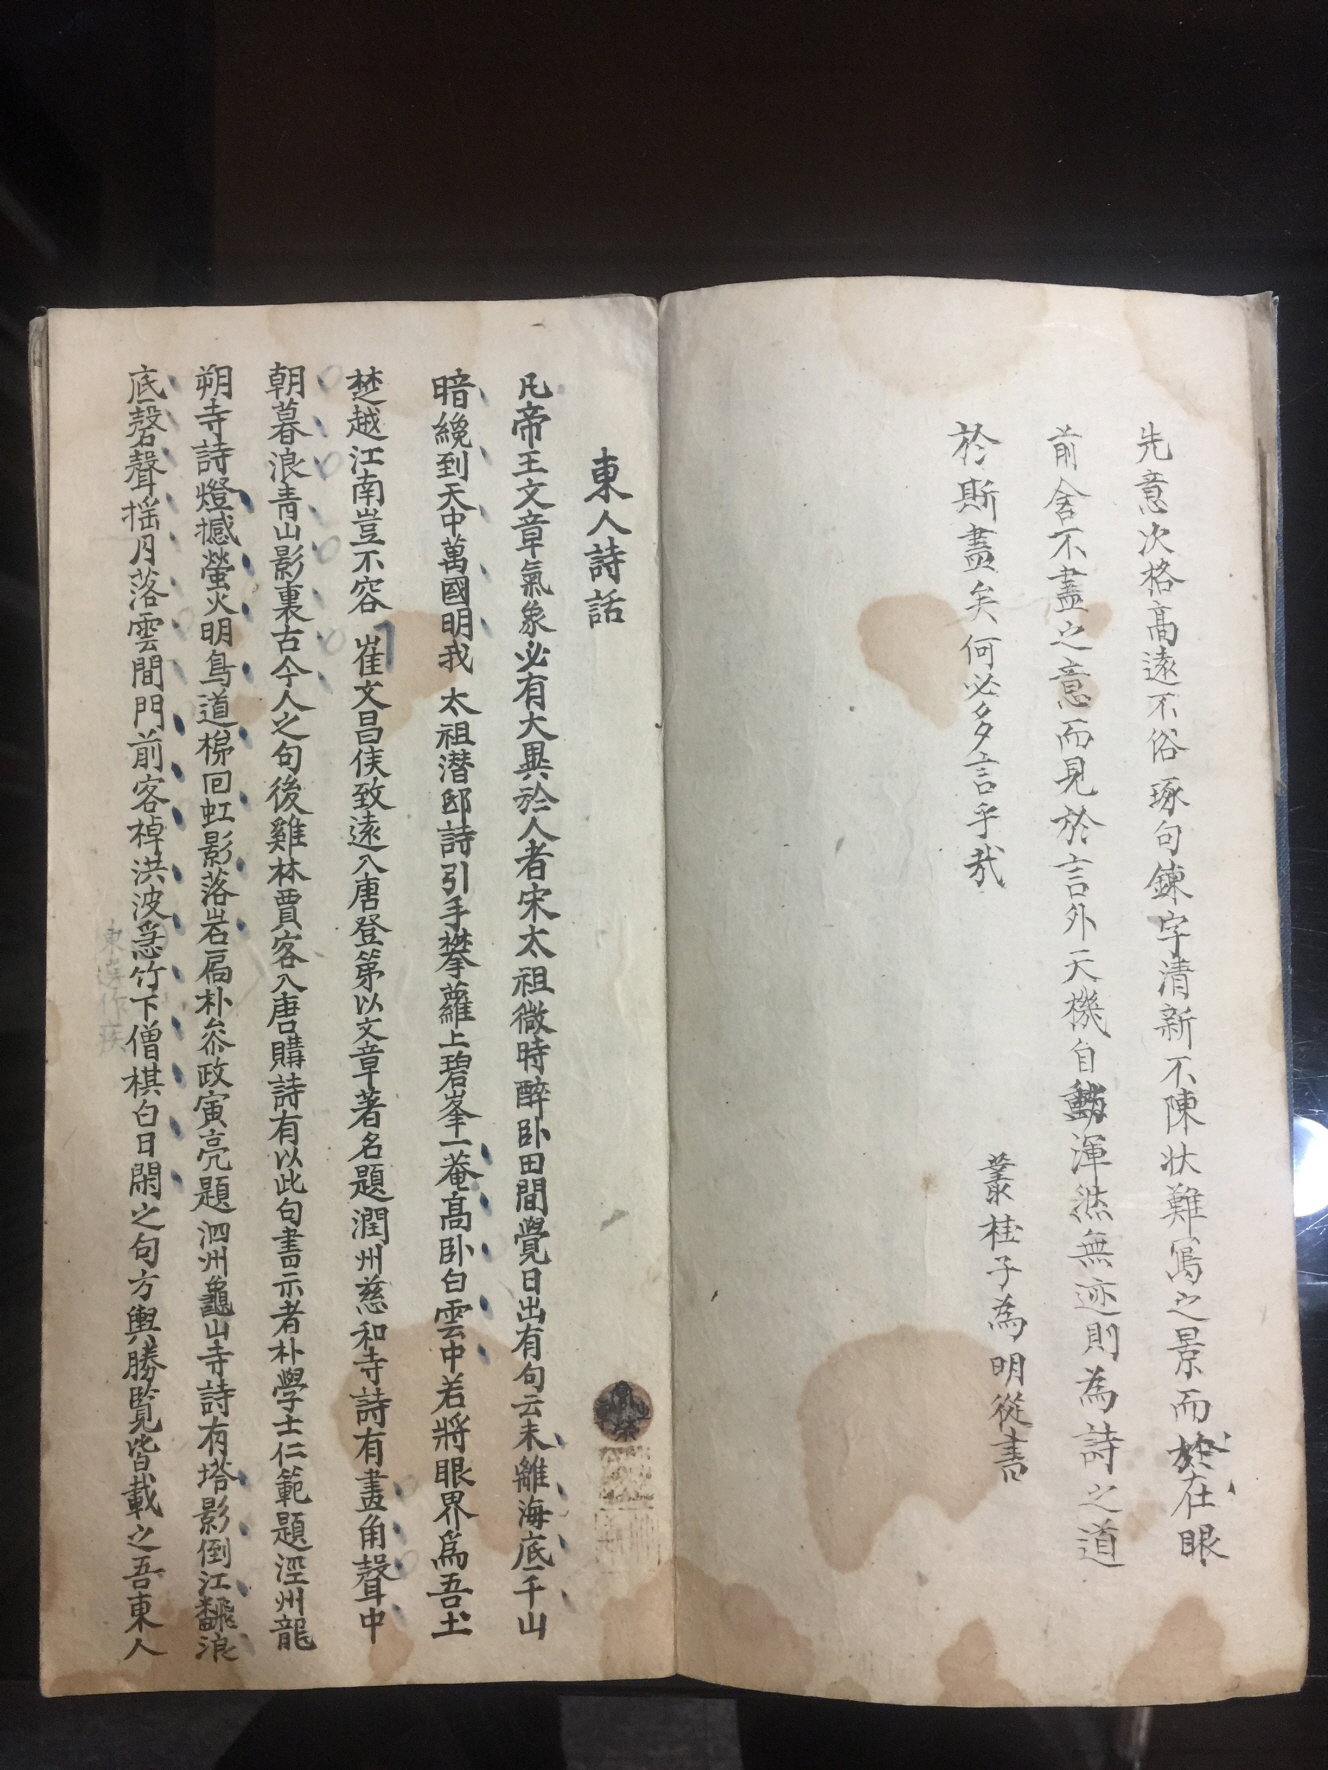 先意次格高遠不俗琢句鍊字清新不陳状難寫之景而於在眼
前含不盡之意而見於言外天機自動渾然無迹則為詩之道
於斯盡矣何必多言乎哉
叢桂子為明從書
東人詩話
凡帝王文章氣象必有大異於人者宋太祖微時醉卧田間覺日出有句云未離海底千山
暗纔到天中萬國明我 太祖潜邸詩引手攀蘿上碧峯一菴高卧白雲中若將眼界為吾土
楚越江南豈不容 崔文昌侯致遠入唐登第以文章著名題潤州慈和寺詩有畫角聲中
朝暮浪青山影裏古今人之句後雞林賈客入唐購詩有以此句書示者朴學士仁範題涇州龍
朔寺詩燈撼螢火明鳥道梯回虹影落岩扃朴叅政寅亮題泗州龜山寺詩有塔影倒江飜浪
底磬聲揺月落雲間門前客棹洪波急竹下僧棋白日閑之句方輿勝覧皆載之吾東人